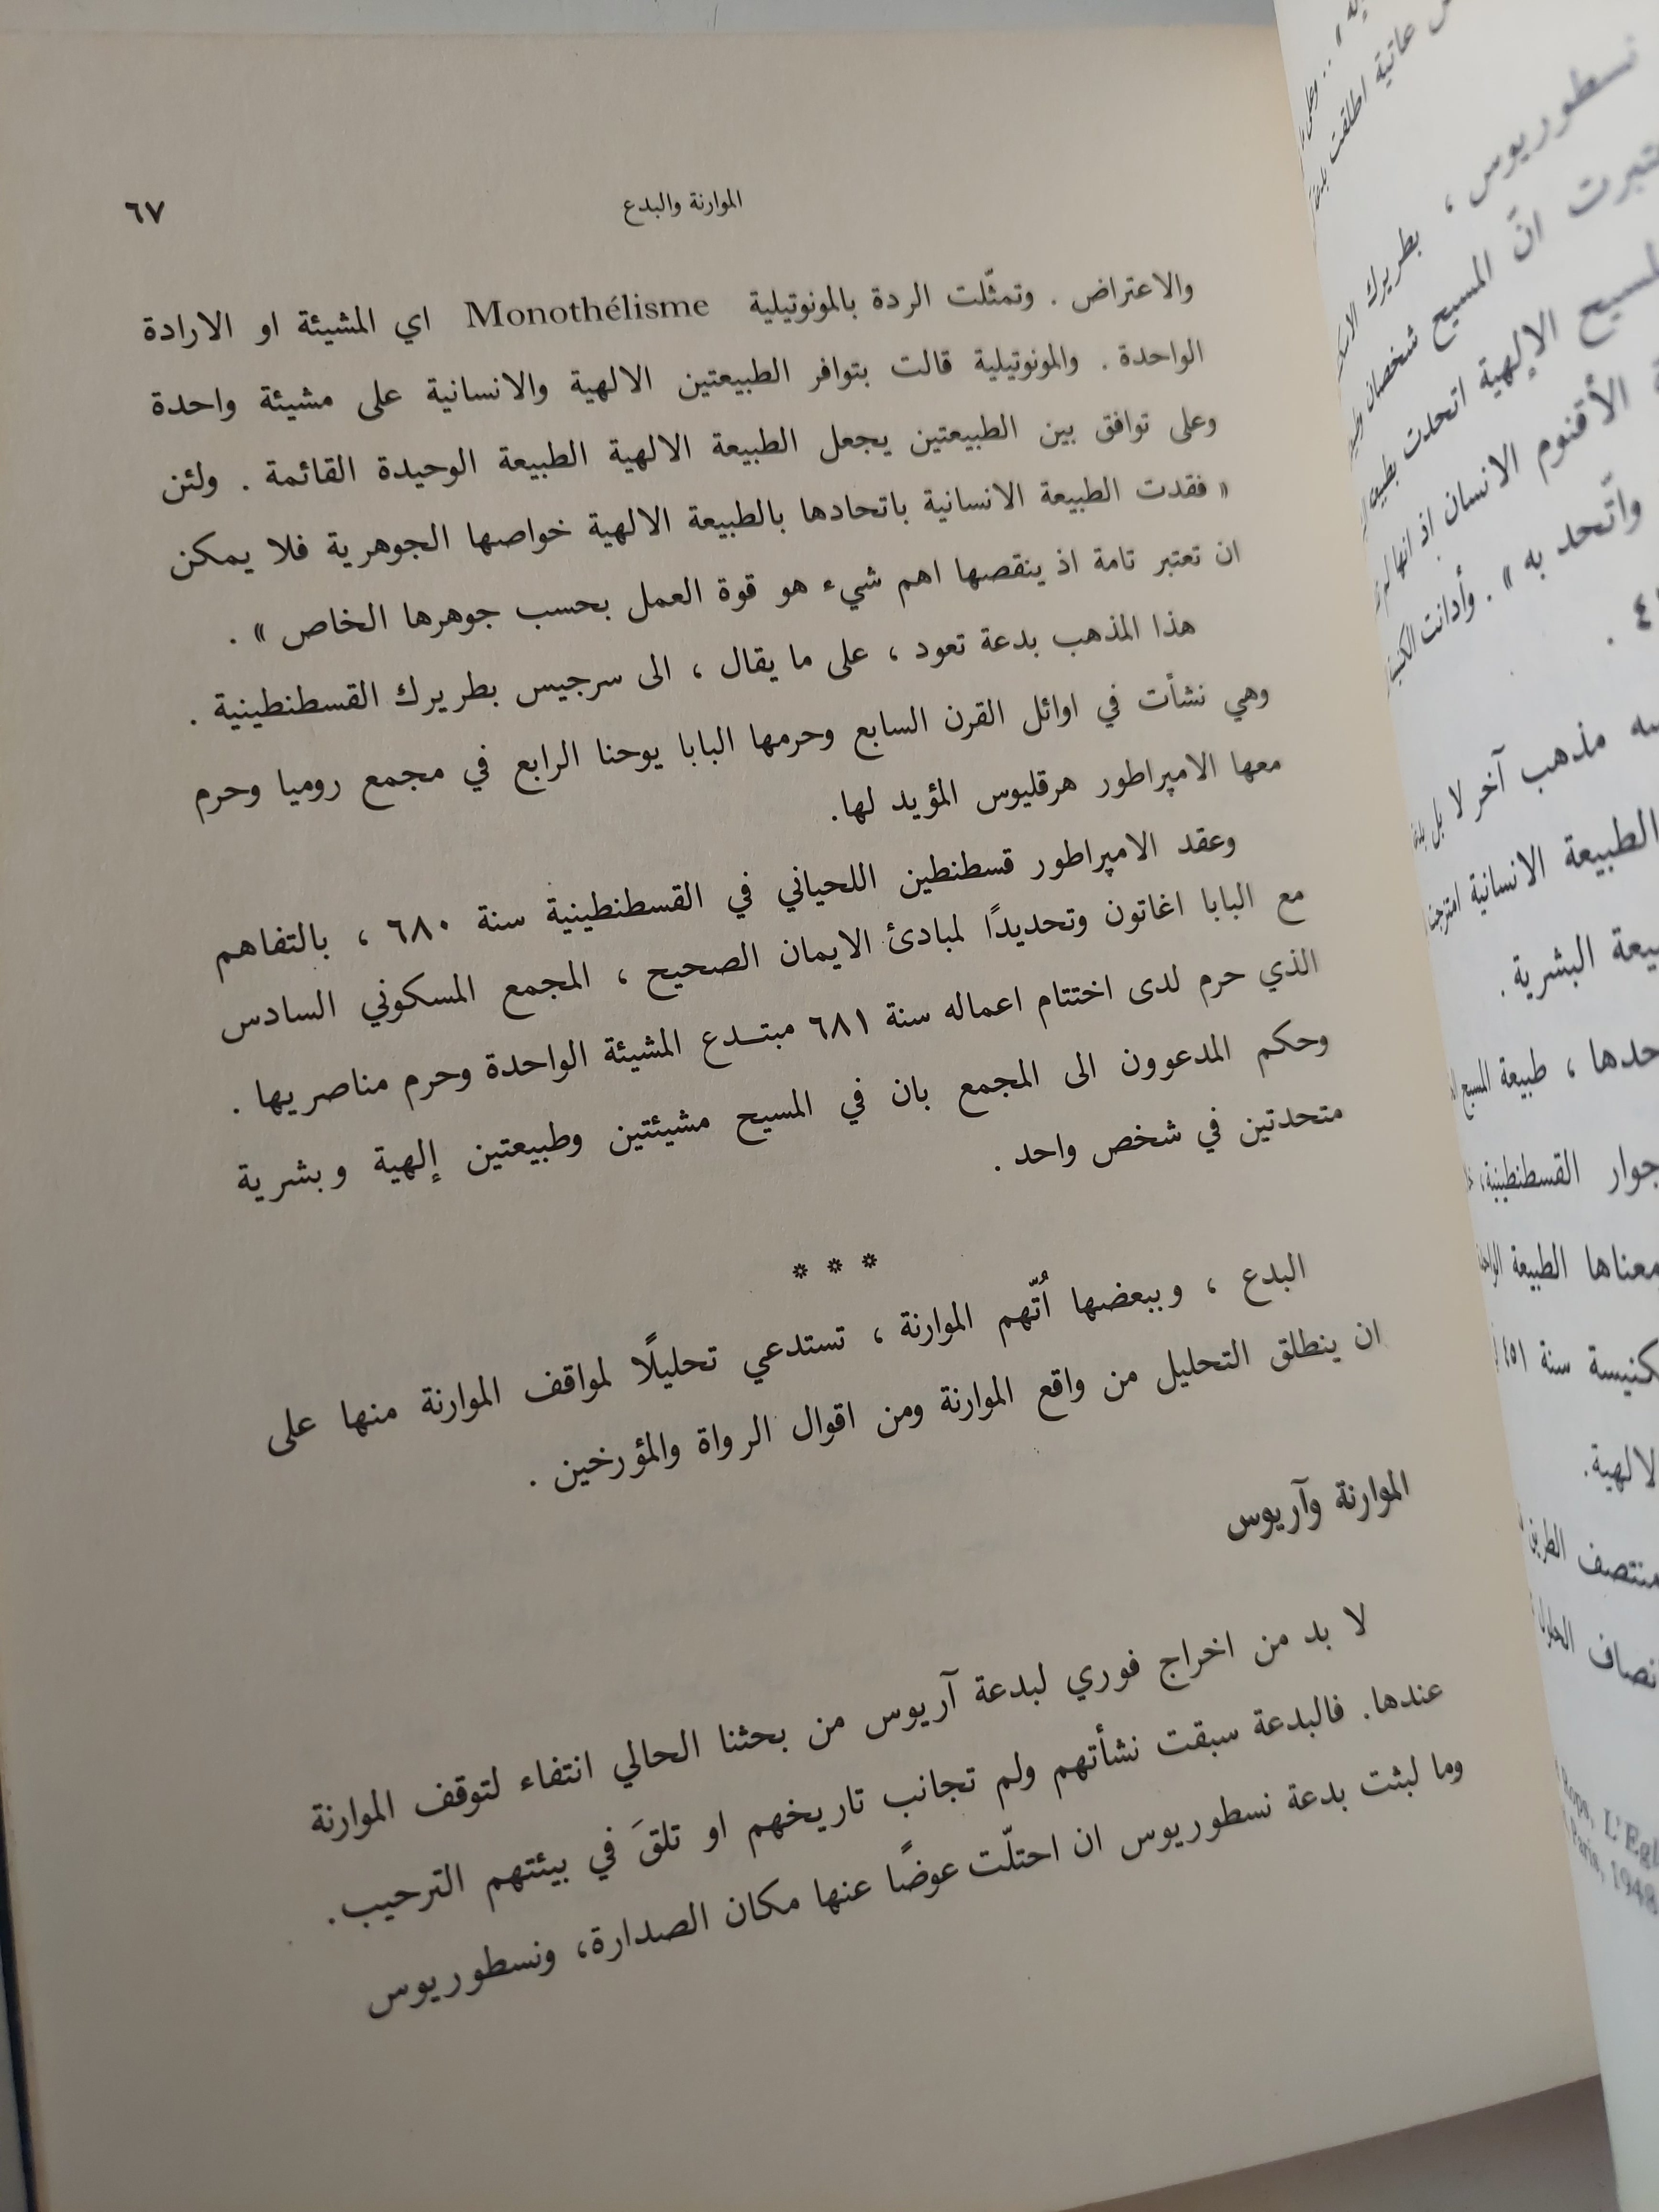 الموارنة والبدع
٦٧
والاعتراض . وتمثّلت الردة بالمونوتيلية Monothélisme اي المشيئة او الارادة
الواحدة . والمونوتيلية قالت بتوافر الطبيعتين الالهية والانسانية على مشيئة واحدة
وعلى توافق بين الطبيعتين يجعل الطبيعة الالهية الطبيعة الوحيدة القائمة . ولئن
« فقدت الطبيعة الانسانية باتحادها بالطبيعة الالهية خواصها الجوهرية فلا يمكن
ان تعتبر تامة اذ ينقصها اهم شيء هو قوة العمل بحسب جوهرها الخاص » .
هذا المذهب بدعة تعود ، على ما يقال ، الى سرجيس بطريرك القسطنطينية .
وهي نشأت في اوائل القرن السابع وحرمها البابا يوحنا الرابع في مجمع روميا وحرم
معها الامپراطور هرقليوس المؤيد لها.
وعقد الامپراطور قسطنطين اللحياني في القسطنطينية سنة ٦٨٠ ، بالتفاهم
مع البابا اغاتون وتحديدًا لمبادئ الايمان الصحيح ، المجمع المسكوني السادس
الذي حرم لدى اختتام اعماله سنة ٦٨١ مبتـدع المشيئة الواحدة وحرم مناصريها .
وحكم المدعوون الى المجمع بان في المسيح مشيئتين وطبيعتين إلهية وبشرية
متحدتين في شخص واحد .
* * *
البدع ، وببعضها اُتّهم الموارنة ، تستدعي تحليلًا لمواقف الموارنة منها على
ان ينطلق التحليل من واقع الموارنة ومن اقوال الرواة والمؤرخين .
الموارنة وآريوس
لا بد من اخراج فوري لبدعة آريوس من بحثنا الحالي انتفاء لتوقف الموارنة
عندها. فالبدعة سبقت نشأتهم ولم تجانب تاريخهم او تلقَ في بيئتهم الترحيب.
وما لبثت بدعة نسطوريوس ان احتلّت عوضًا عنها مكان الصدارة، ونسطوريوس
عاتية اطلقت
نسطوريوس ، بطريرك
انّ المسيح شخصان
الإلهية اتحدت
الأقنوم الانسان اذ انها لم
واتّحد به » . وأدانت
مذهب آخر لا بل
الطبيعة الانسانية
البشرية .
، طبيعة المسيح
جوار القسطنطينية،
معناها الطبيعة
سنة ٤٥١
منتصف
L'Egl
Paris, 1948